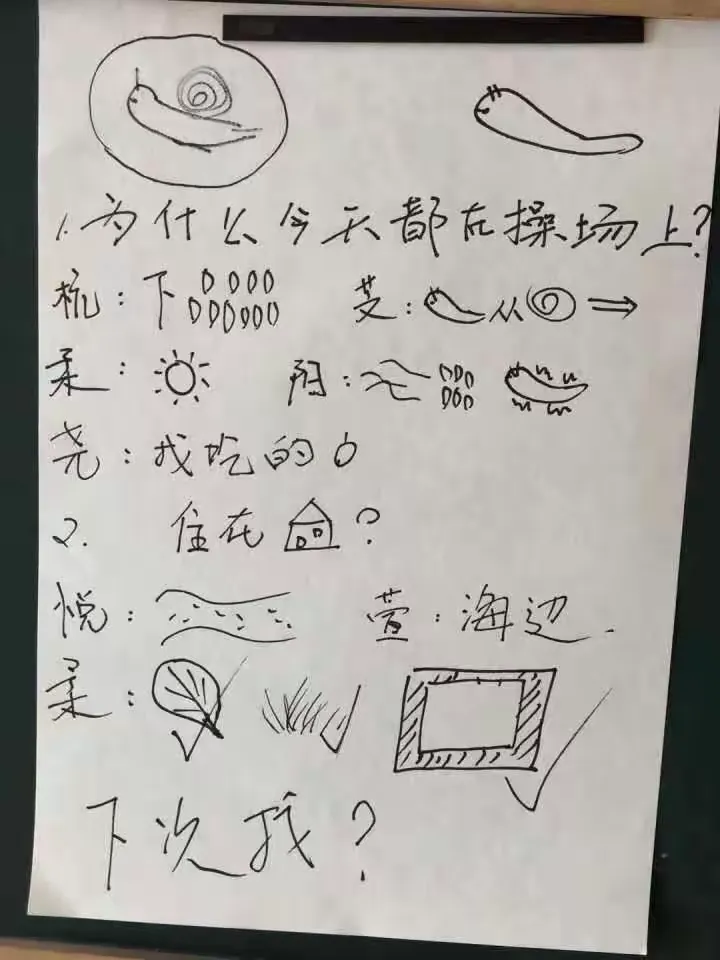 1.为什么今天都在操场上?
梳:下 艾:从
柔: 阳:
尧:找吃的
2. 住在?
悦: 萱:海边.
柔:
下次找?